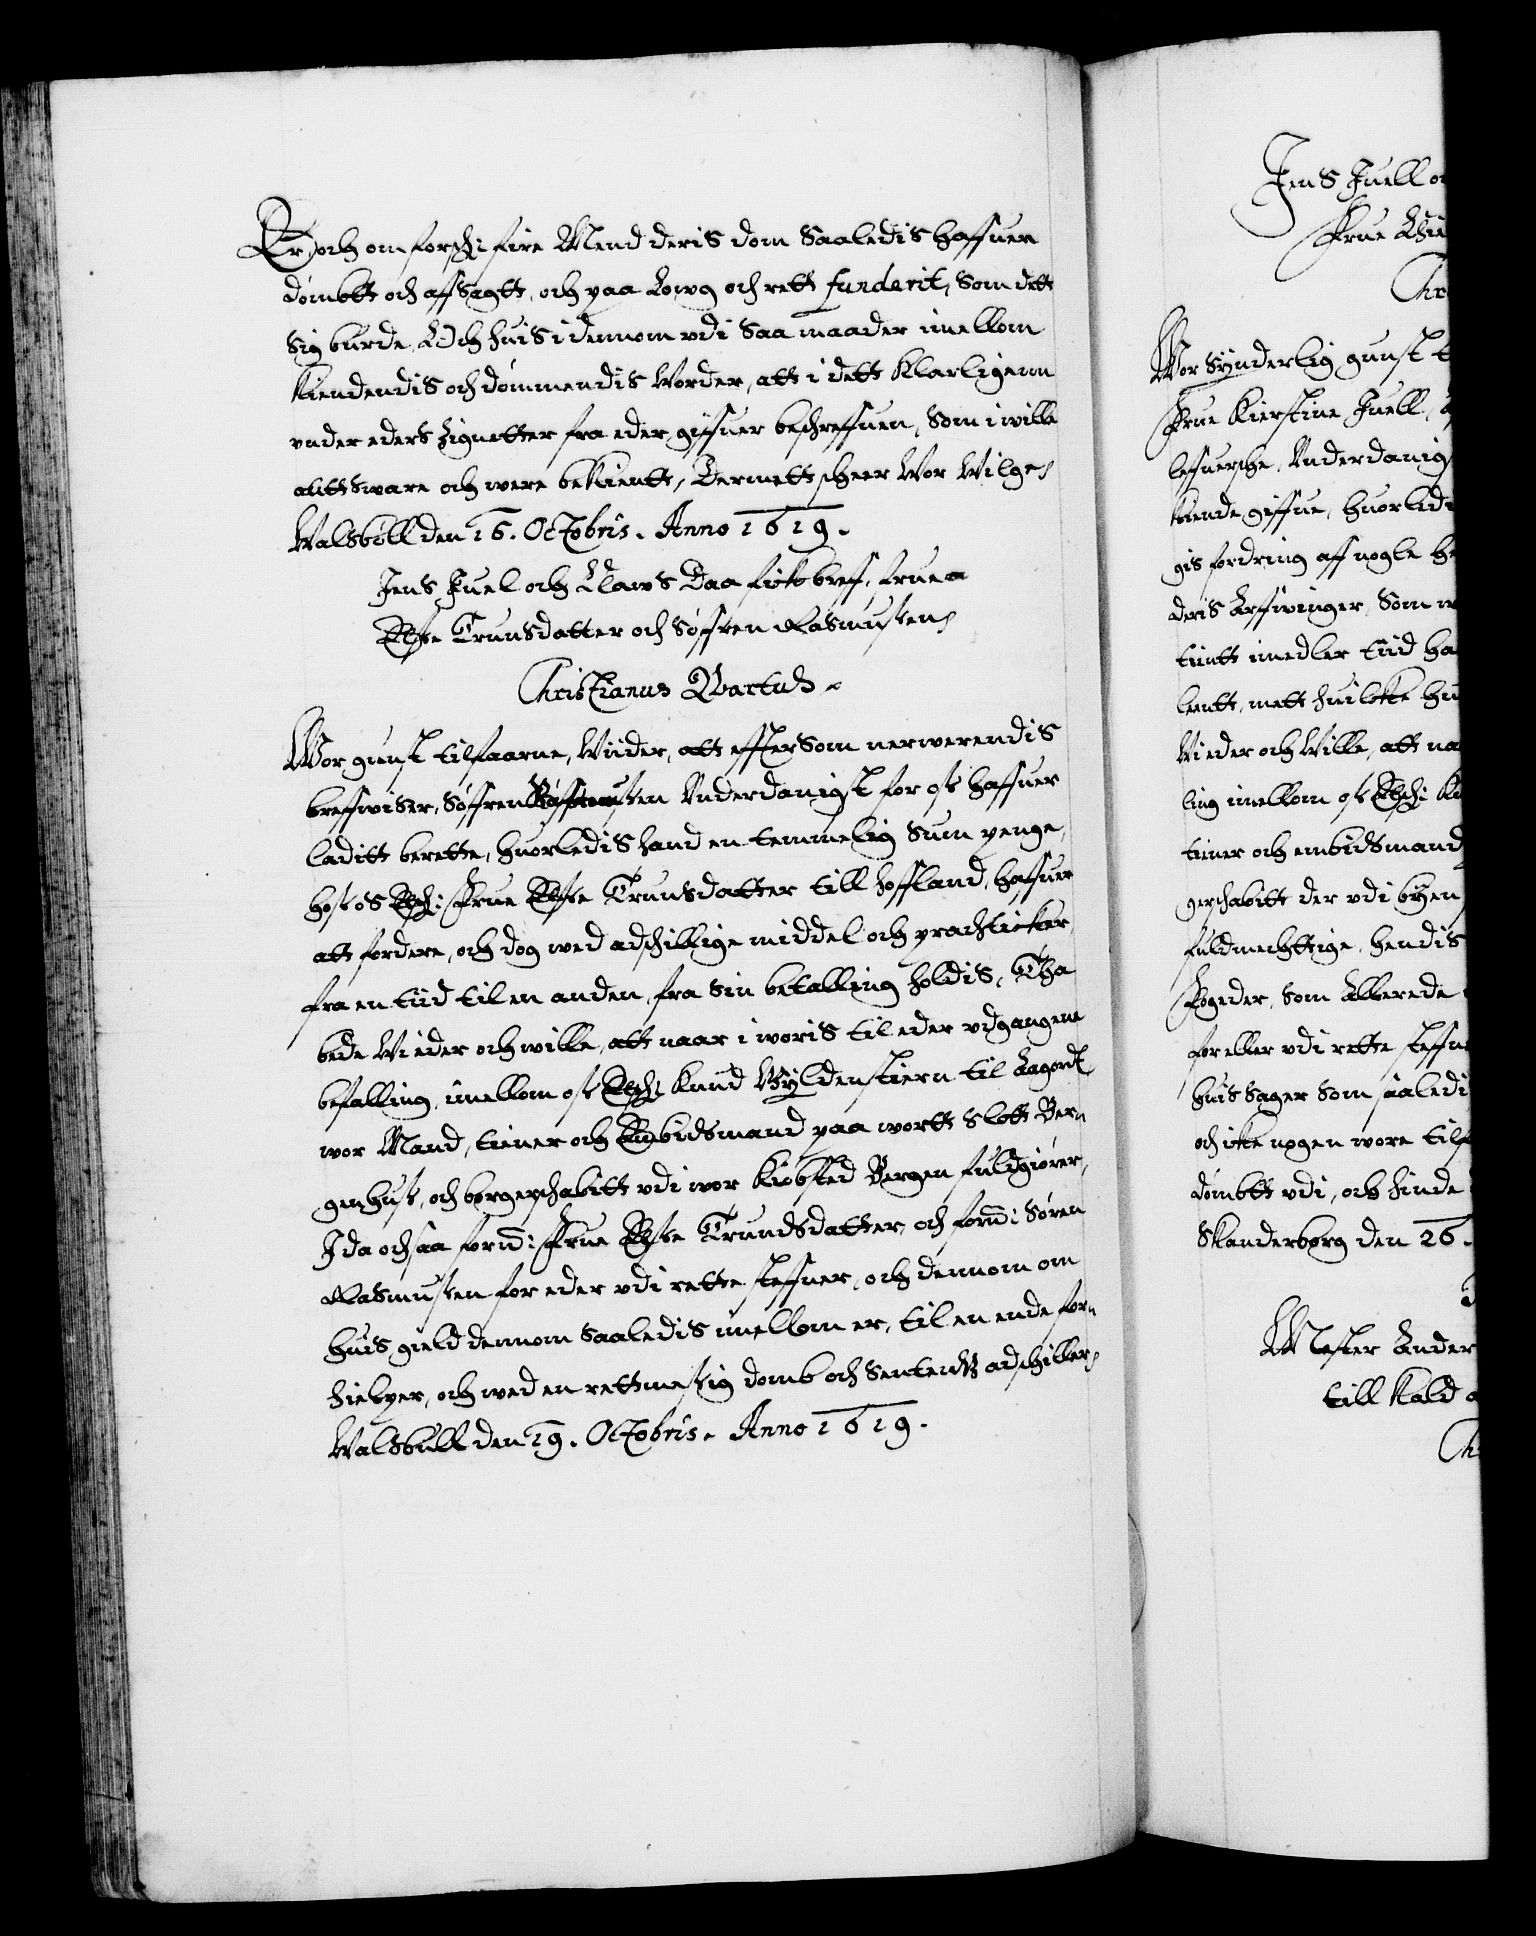 Er, och om forschi fire Mend deris dom Saaledis haffuer
dømbtt och aff Sagtt, och paa Lowg och rett funderit, Som dett
sig burde, Och huis i dennom vdi Saa maader imellom
Kiendendis och dømmendis Worder, att i dett Klarligenn
vnder eders Zignetter fra eder giffuer beschreffuen, Som i wille
antt Sware och were bekientt, Dermett scheer Wor Wilge,
Walsbøll den 16. Octobris. Anno 1619.
Jens Juel och Claws Daa fick breff, Frue
Else Trunsdatter och Søffren Rasmussen
Christianus Quartus.
Wor gunst tilforne, Wiider, att effter Som nerwerendis
breffwiser, Søffren Rasmussen Vnderdanigst for oss haffuer
laditt berette, huorledis hand en temmelig Sum penge,
hos os Elsch: Frue Else Trunsdatter till hoffland, haffuer
att fordere, och dog wed adschillige middel och practicker
fra en tiid til en anden, fra Sin betalling holdis, Tha
bede Wi eder och wille, att naar i woris til eder vdgangene
befalling, imellom oss Elsch: Knud Gyldenstiern til Aagord
wor Mand, tiener och Embidsmand paa wortt Slott Ber=
genhuss, och borgerschabitt vdi wor Kiøbsted Bergen fuldgiører,
I da ochsaa fornd: Frue Else Trundsdatter, och fornd: Søren
Rasmussen for eder vdi rette steffner, och dennom om
huis gield dennom Saaledis imellom er, til en ende for=
hielper, och wed en rettmessig domb och Sentendtz adschiller,
Walsbull den 19. Octobris. Anno 1619.
Jens Juell
Frue
Chr
Wor Synderlig gunst
Frue Kierstine Juell,
lefuersche, Vnderdanig
kiende giffue, huorledi
gis fordring aff nogle
deris Arffwinger, Som
tientt imedler tiid
lentt, mett huilcke
Wi eder och Wille, att na
ling imellom oss Elsch: K
tiener och embidsmand
gerschabitt der vdi byen
fuldmechttige, hendis
Fogeder, Som Allerede
for eller vdi rette steffn
huis Sager Som saaledi
och icke nogen wore
dømbtt vdi, och hinde
Skanderborg den 26.
Mester Ander
till Kald
Ch